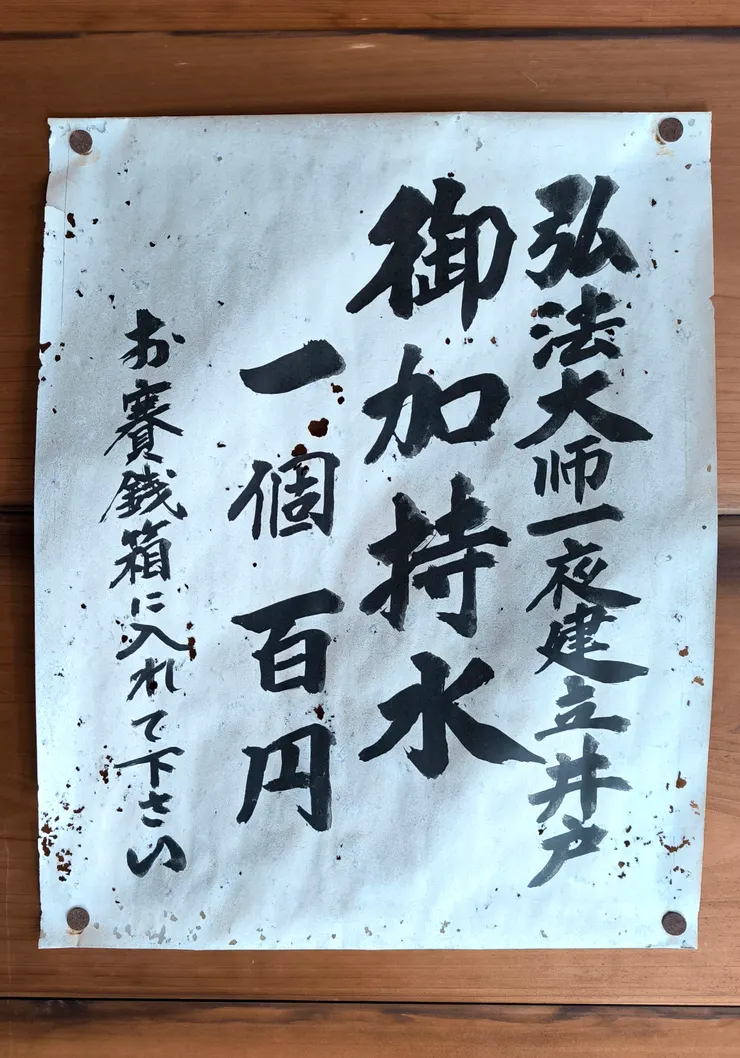 弘法大师一夜建立井戸
御加持水
一個 百円
お賽銭箱に入れて下さい